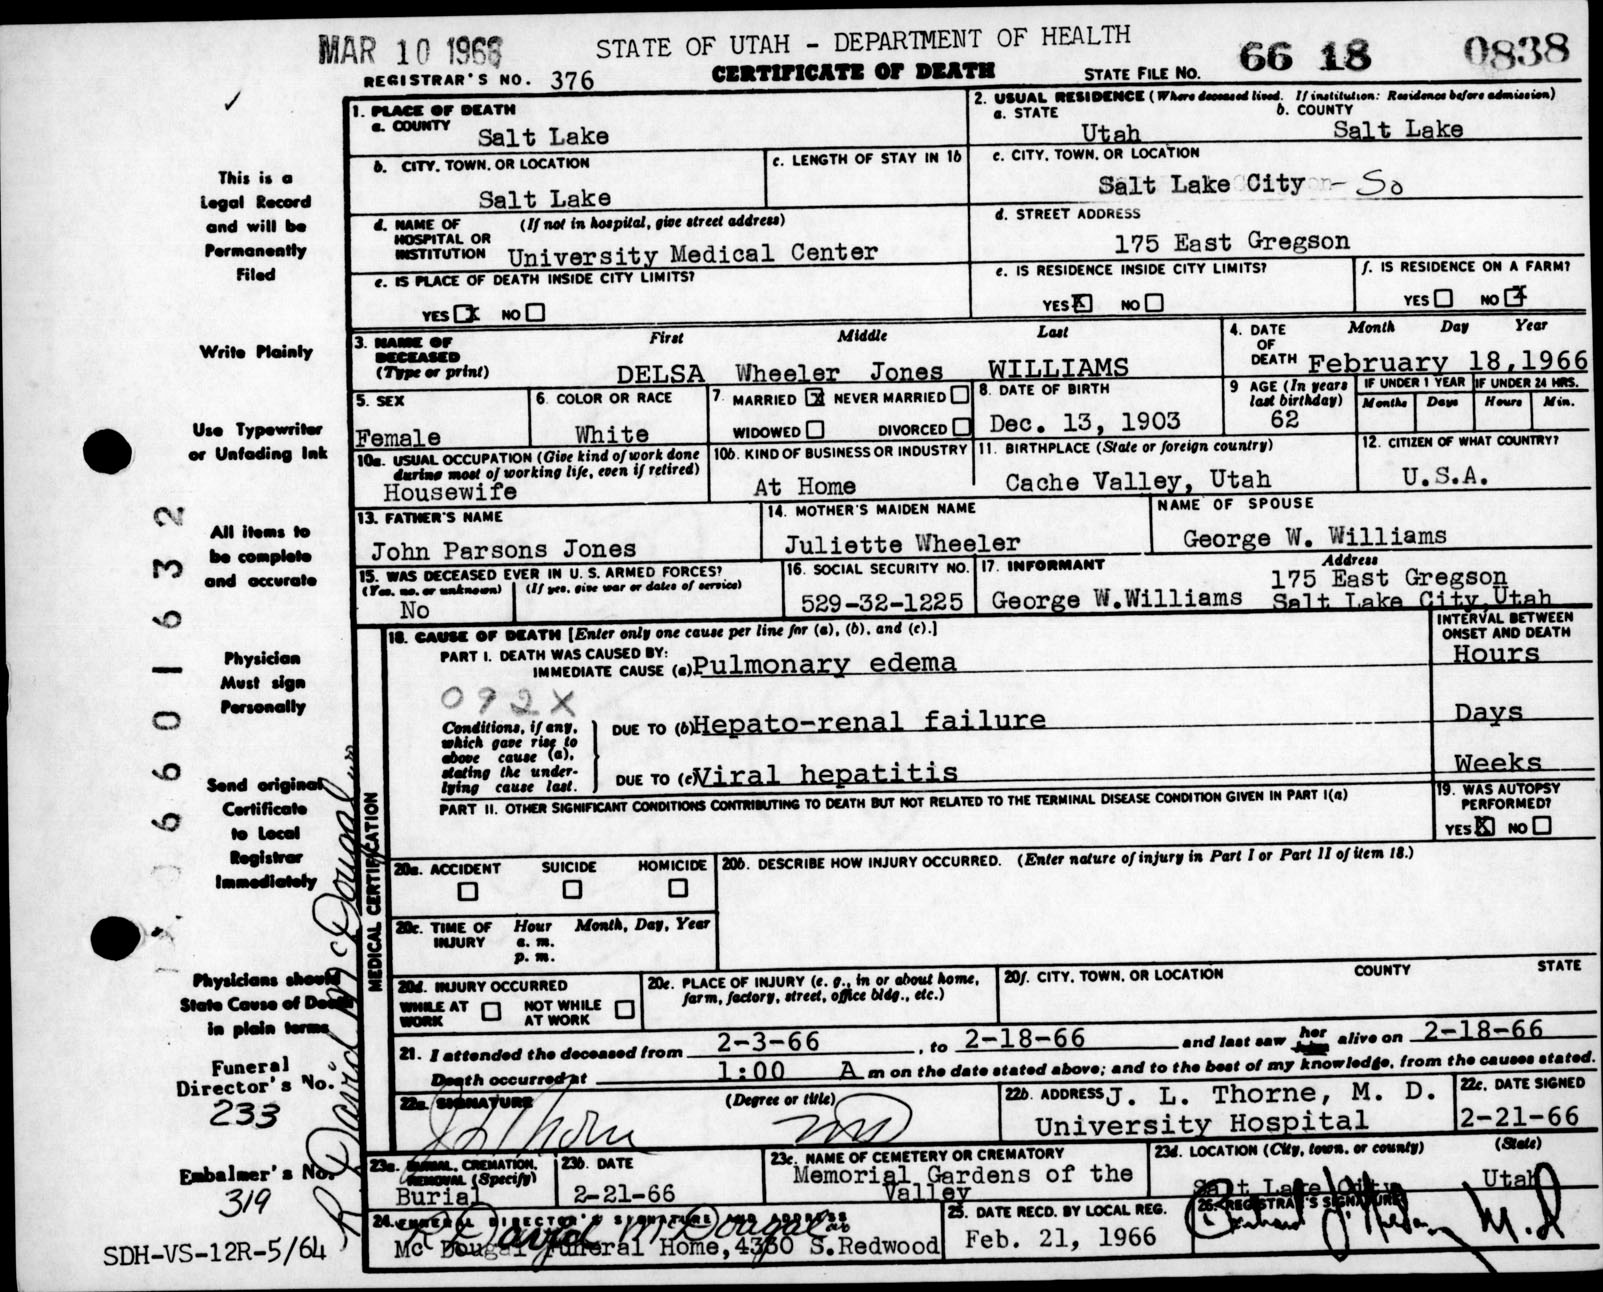 MAR 10 1966
STATE OF UTAH - DEPARTMENT OF HEALTH
66 18 0838
REGISTRAR'S NO. 376
CERTIFICATE OF DEATH
STATE FILE NO.
1. PLACE OF DEATH
a. COUNTY
Salt Lake
2. USUAL RESIDENCE (Where deceased lived. If institution: Residence before admission)
a. STATE
Utah
b. COUNTY
Salt Lake
b. CITY, TOWN, OR LOCATION
Salt Lake
c. LENGTH OF STAY IN 1b
c. CITY, TOWN, OR LOCATION
Salt Lake City - So
d. NAME OF HOSPITAL OR INSTITUTION
(If not in hospital, give street address)
University Medical Center
d. STREET ADDRESS
175 East Gregson
e. IS PLACE OF DEATH INSIDE CITY LIMITS?
YES X NO
e. IS RESIDENCE INSIDE CITY LIMITS?
YES X NO
f. IS RESIDENCE ON A FARM?
YES NO X
3. NAME OF DECEASED
(Type or print)
First Middle Last
DELSA Wheeler Jones WILLIAMS
4. DATE OF DEATH
Month Day Year
February 18, 1966
5. SEX
Female
6. COLOR OR RACE
White
7. MARRIED X NEVER MARRIED
WIDOWED DIVORCED
8. DATE OF BIRTH
Dec. 13, 1903
9 AGE (In years last birthday)
62
IF UNDER 1 YEAR
Months Days
IF UNDER 24 HRS.
Hours Min.
10a. USUAL OCCUPATION (Give kind of work done during most of working life, even if retired)
Housewife
10b. KIND OF BUSINESS OR INDUSTRY
At Home
11. BIRTHPLACE (State or foreign country)
Cache Valley, Utah
12. CITIZEN OF WHAT COUNTRY?
U.S.A.
13. FATHER'S NAME
John Parsons Jones
14. MOTHER'S MAIDEN NAME
Juliette Wheeler
NAME OF SPOUSE
George W. Williams
15. WAS DECEASED EVER IN U. S. ARMED FORCES?
(Yes, no, or unknown) (If yes, give war or dates of service)
No
16. SOCIAL SECURITY NO.
529-32-1225
17. INFORMANT
George W.Williams
Address
175 East Gregson
Salt Lake City, Utah
MEDICAL CERTIFICATION
18. CAUSE OF DEATH [Enter only one cause per line for (a), (b), and (c).]
INTERVAL BETWEEN ONSET AND DEATH
PART I. DEATH WAS CAUSED BY:
IMMEDIATE CAUSE (a) Pulmonary edema
Hours
092X
Conditions, if any, which gave rise to above cause (a), stating the underlying cause last.
DUE TO (b) Hepato-renal failure
Days
DUE TO (c) Viral hepatitis
Weeks
PART II. OTHER SIGNIFICANT CONDITIONS CONTRIBUTING TO DEATH BUT NOT RELATED TO THE TERMINAL DISEASE CONDITION GIVEN IN PART I(a)
19. WAS AUTOPSY PERFORMED?
YES X NO
20a. ACCIDENT SUICIDE HOMICIDE
20b. DESCRIBE HOW INJURY OCCURRED. (Enter nature of injury in Part I or Part II of item 18.)
20c. TIME OF INJURY
Hour Month, Day, Year
a. m.
p. m.
20d. INJURY OCCURRED
WHILE AT WORK
NOT WHILE AT WORK
20e. PLACE OF INJURY (e. g., in or about home, farm, factory, street, office bldg., etc.)
20f. CITY, TOWN, OR LOCATION COUNTY STATE
21. I attended the deceased from 2-3-66, to 2-18-66 and last saw her alive on 2-18-66
Death occurred at 1:00 A m on the date stated above; and to the best of my knowledge, from the causes stated.
22a. SIGNATURE
(Degree or title)
J L Thorne MD
22b. ADDRESS J. L. Thorne, M. D.
University Hospital
22c. DATE SIGNED
2-21-66
23a. BURIAL, CREMATION, REMOVAL (Specify)
Burial
23b. DATE
2-21-66
23c. NAME OF CEMETERY OR CREMATORY
Memorial Gardens of the
Valley
23d. LOCATION (City, town, or county) (State)
Salt Lake City Utah
24. FUNERAL DIRECTOR'S SIGNATURE AND ADDRESS
R David McDougal
Mc Dougal Funeral Home, 4330 S.Redwood
25. DATE RECD. BY LOCAL REG.
Feb. 21, 1966
26. REGISTRAR'S SIGNATURE
M.D
This is a
Legal Record
and will be
Permanently
Filed
Write Plainly
Use Typewriter
or Unfading Ink
All items to
be complete
and accurate
Physician
Must sign
Personally
Send original
Certificate
to Local
Registrar
Immediately
Physicians should
State Cause of Death
in plain terms
Funeral
Director's No.
233
Embalmer's No.
319
SDH-VS-12R-5/64
6601632
R David McDougal